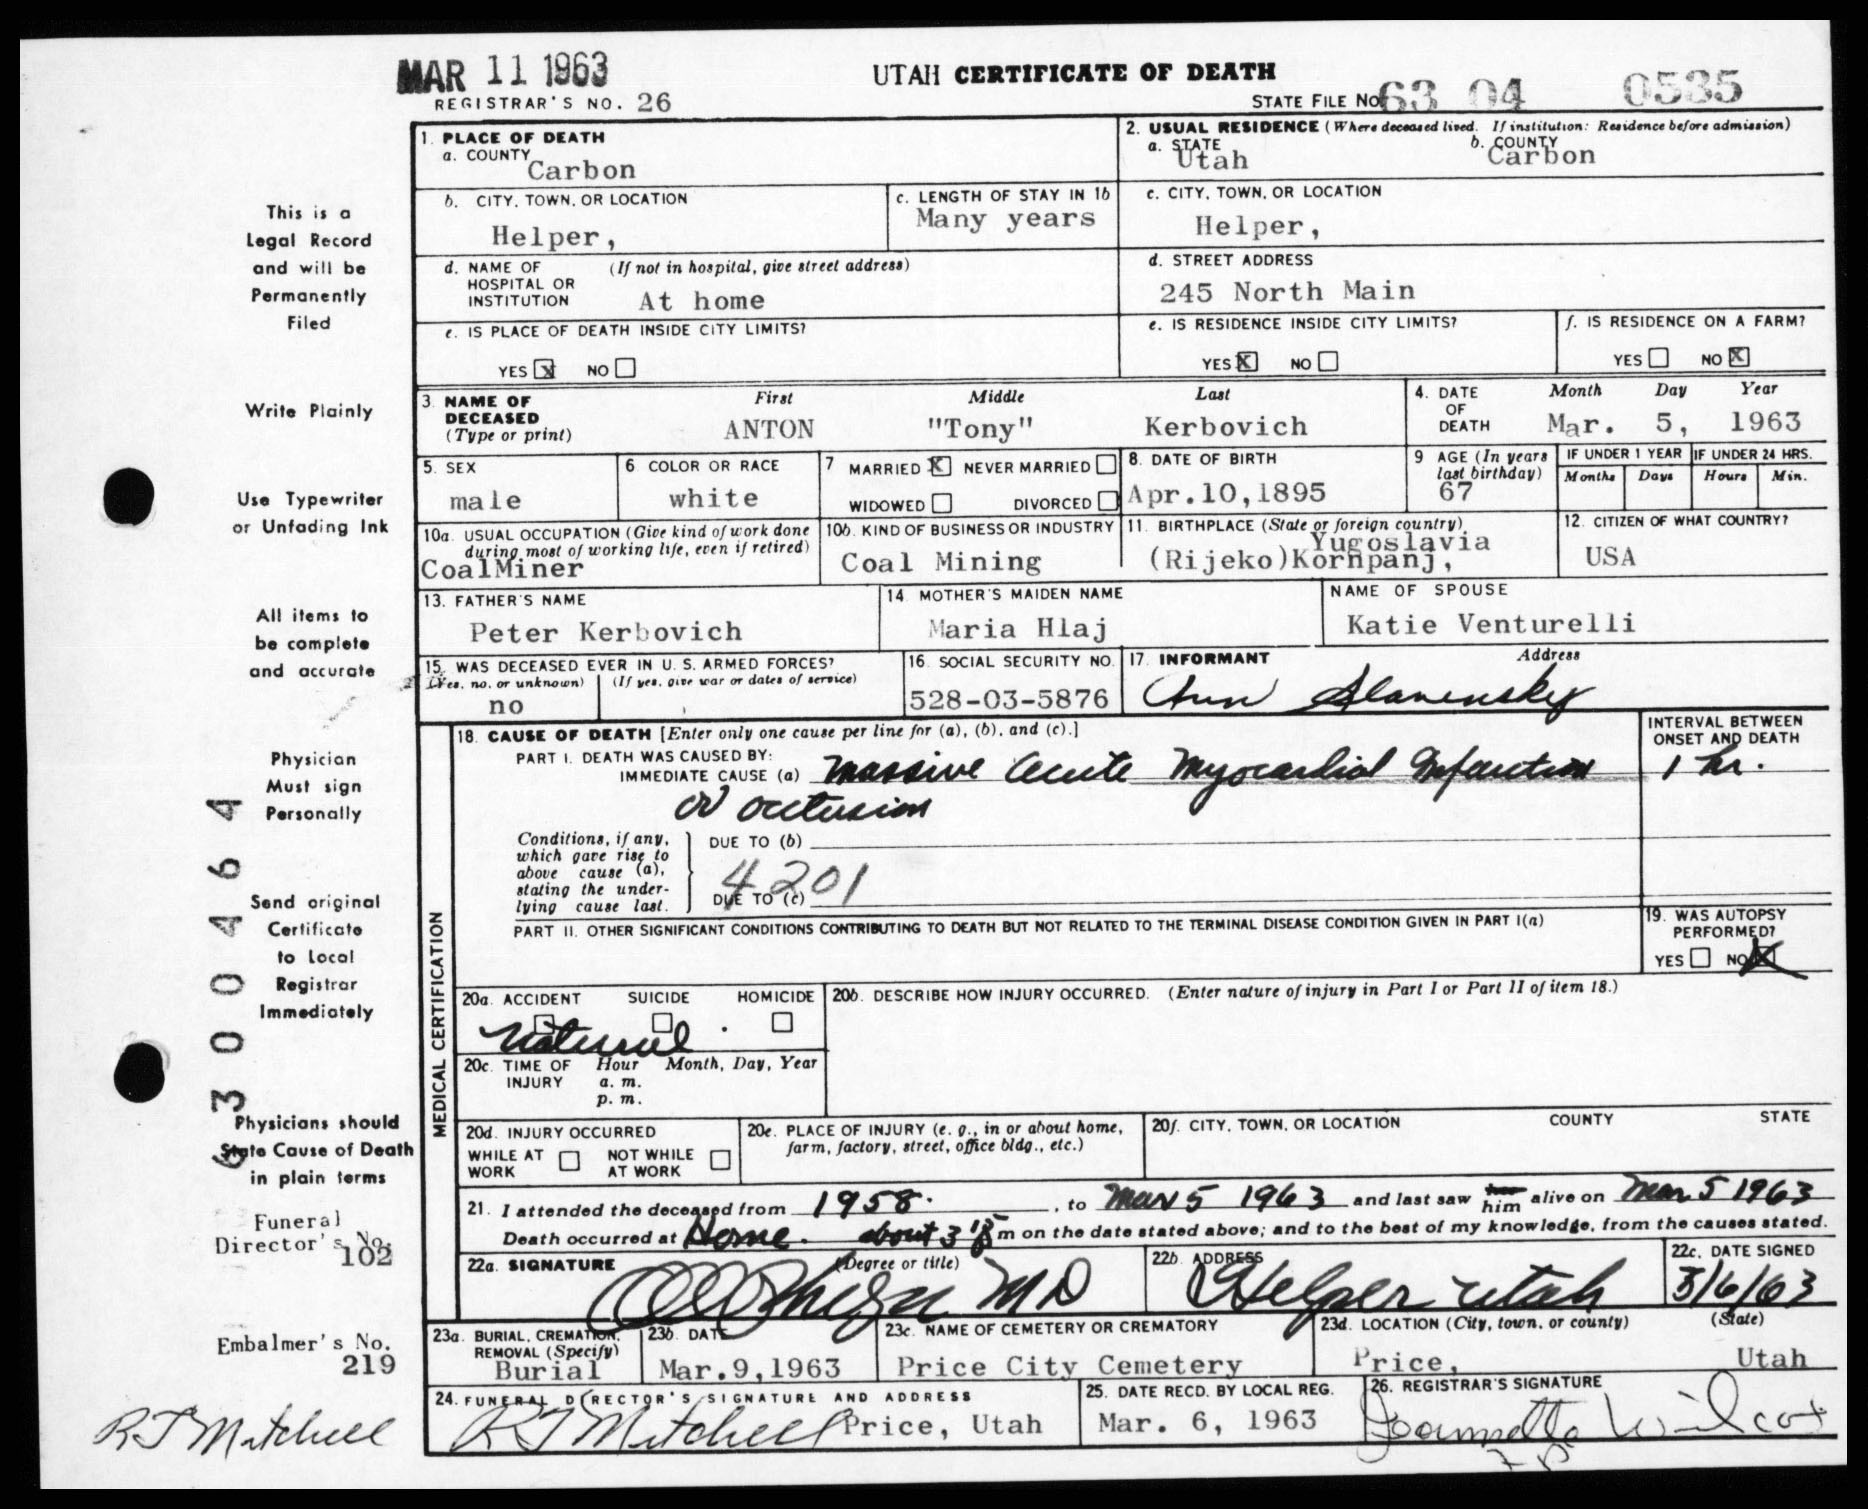 MAR 11 1963
UTAH CERTIFICATE OF DEATH
REGISTRAR'S NO. 26
STATE FILE NO. 63 04 0535
1. PLACE OF DEATH
a. COUNTY
Carbon
2. USUAL RESIDENCE (Where deceased lived. If institution: Residence before admission)
a. STATE
Utah
b. COUNTY
Carbon
b. CITY, TOWN, OR LOCATION
Helper,
c. LENGTH OF STAY IN 1b
Many years
c. CITY, TOWN, OR LOCATION
Helper,
d. NAME OF HOSPITAL OR INSTITUTION
(If not in hospital, give street address)
At home
d. STREET ADDRESS
245 North Main
e. IS PLACE OF DEATH INSIDE CITY LIMITS?
YES X NO
e. IS RESIDENCE INSIDE CITY LIMITS?
YES X NO
f. IS RESIDENCE ON A FARM?
YES NO X
3. NAME OF DECEASED
(Type or print)
First Middle Last
ANTON "Tony" Kerbovich
4. DATE OF DEATH
Month Day Year
Mar. 5, 1963
5. SEX
male
6 COLOR OR RACE
white
7 MARRIED X NEVER MARRIED
WIDOWED DIVORCED
8. DATE OF BIRTH
Apr.10,1895
9 AGE (In years last birthday)
67
IF UNDER 1 YEAR
Months Days
IF UNDER 24 HRS.
Hours Min.
10a. USUAL OCCUPATION (Give kind of work done during most of working life, even if retired)
CoalMiner
10b. KIND OF BUSINESS OR INDUSTRY
Coal Mining
11. BIRTHPLACE (State or foreign country)
Yugoslavia
(Rijeko)Kornpanj,
12. CITIZEN OF WHAT COUNTRY?
USA
13. FATHER'S NAME
Peter Kerbovich
14. MOTHER'S MAIDEN NAME
Maria Hlaj
NAME OF SPOUSE
Katie Venturelli
15. WAS DECEASED EVER IN U. S. ARMED FORCES?
(Yes, no, or unknown) (If yes, give war or dates of service)
no
16. SOCIAL SECURITY NO.
528-03-5876
17. INFORMANT Address
Ann Slavensky
MEDICAL CERTIFICATION
18. CAUSE OF DEATH [Enter only one cause per line for (a), (b), and (c).]
PART I. DEATH WAS CAUSED BY:
IMMEDIATE CAUSE (a) Massive Acute Myocardial Infarction
or occlusion
INTERVAL BETWEEN ONSET AND DEATH
1 hr.
Conditions, if any, which gave rise to above cause (a), stating the under-lying cause last.
DUE TO (b)
4201
DUE TO (c)
PART II. OTHER SIGNIFICANT CONDITIONS CONTRIBUTING TO DEATH BUT NOT RELATED TO THE TERMINAL DISEASE CONDITION GIVEN IN PART I(a)
19. WAS AUTOPSY PERFORMED?
YES NO X
20a. ACCIDENT SUICIDE HOMICIDE
Natural
20b. DESCRIBE HOW INJURY OCCURRED. (Enter nature of injury in Part I or Part II of item 18.)
20c. TIME OF INJURY Hour Month, Day, Year
a. m.
p. m.
20d. INJURY OCCURRED
WHILE AT WORK NOT WHILE AT WORK
20e. PLACE OF INJURY (e. g., in or about home, farm, factory, street, office bldg., etc.)
20f. CITY, TOWN, OR LOCATION COUNTY STATE
21. I attended the deceased from 1958. , to Mar 5 1963 and last saw her him alive on Mar 5 1963
Death occurred at Home. about 3 15 p m on the date stated above; and to the best of my knowledge, from the causes stated.
22a. SIGNATURE (Degree or title)
MD
22b. ADDRESS
Helper Utah
22c. DATE SIGNED
3/6/63
23a. BURIAL, CREMATION, REMOVAL (Specify)
Burial
23b. DATE
Mar.9,1963
23c. NAME OF CEMETERY OR CREMATORY
Price City Cemetery
23d. LOCATION (City, town, or county) (State)
Price, Utah
24. FUNERAL DIRECTOR'S SIGNATURE AND ADDRESS
R T Mitchell Price, Utah
25. DATE RECD. BY LOCAL REG.
Mar. 6, 1963
26. REGISTRAR'S SIGNATURE
Jeannette Wilcox
This is a
Legal Record
and will be
Permanently
Filed
Write Plainly
Use Typewriter
or Unfading Ink
All items to
be complete
and accurate
Physician
Must sign
Personally
Send original
Certificate
to Local
Registrar
Immediately
Physicians should
State Cause of Death
in plain terms
6300464
Funeral
Director's No.
102
Embalmer's No.
219
R T Mitchell